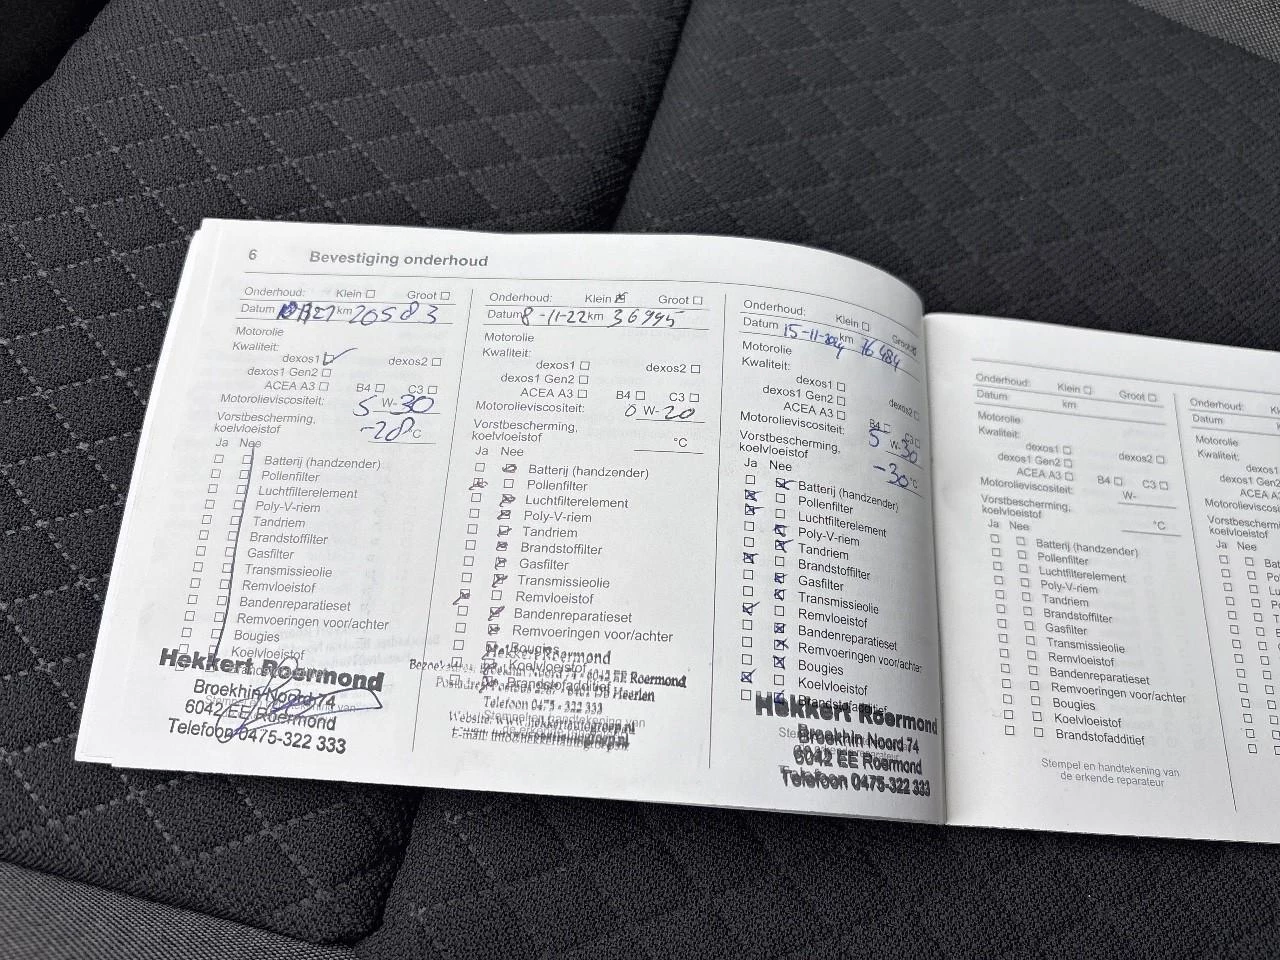 6 Bevestiging onderhoud
Onderhoud: Klein Groot
Datum km 20583
Motorolie
Kwaliteit:
dexos1 dexos2
dexos1 Gen2
ACEA A3 B4 C3
Motorolieviscositeit: 5 W-30
Vorstbescherming,
koelvloeistof -28 °C
Ja Nee
Batterij (handzender)
Pollenfilter
Luchtfilterelement
Poly-V-riem
Tandriem
Brandstoffilter
Gasfilter
Transmissieolie
Remvloeistof
Bandenreparatieset
Remvoeringen voor/achter
Bougies
Koelvloeistof
Hekkert Roermond
Broekhin Noord 74
6042 EE Roermond
Telefoon 0475-322 333
Onderhoud: Klein Groot
Datum 8-11-22 km 36995
Motorolie
Kwaliteit:
dexos1 dexos2
dexos1 Gen2
ACEA A3 B4 C3
Motorolieviscositeit: 0 W-20
Vorstbescherming,
koelvloeistof °C
Ja Nee
Batterij (handzender)
Pollenfilter
Luchtfilterelement
Poly-V-riem
Tandriem
Brandstoffilter
Gasfilter
Transmissieolie
Remvloeistof
Bandenreparatieset
Remvoeringen voor/achter
Bougies
Koelvloeistof
Brandstofadditief
Roermond
6042 EE Roermond
Heerlen
Telefoon 0475 - 322 333
Stempel en handtekening van
de erkende reparateur
Onderhoud: Klein Groot
Datum 15-11-2024 km 76484
Motorolie
Kwaliteit:
dexos1 dexos2
dexos1 Gen2
ACEA A3 B4 C3
Motorolieviscositeit: 5 W-30
Vorstbescherming,
koelvloeistof -30 °C
Ja Nee
Batterij (handzender)
Pollenfilter
Luchtfilterelement
Poly-V-riem
Tandriem
Brandstoffilter
Gasfilter
Transmissieolie
Remvloeistof
Bandenreparatieset
Remvoeringen voor/achter
Bougies
Koelvloeistof
Brandstofadditief
Hekkert Roermond
Broekhin Noord 74
6042 EE Roermond
Telefoon 0475-322 333
Onderhoud: Klein Groot
Datum km
Motorolie
Kwaliteit:
dexos1 dexos2
dexos1 Gen2
ACEA A3 B4 C3
Motorolieviscositeit: W-
Vorstbescherming,
koelvloeistof °C
Ja Nee
Batterij (handzender)
Pollenfilter
Luchtfilterelement
Poly-V-riem
Tandriem
Brandstoffilter
Gasfilter
Transmissieolie
Remvloeistof
Bandenreparatieset
Remvoeringen voor/achter
Bougies
Koelvloeistof
Brandstofadditief
Stempel en handtekening van
de erkende reparateur
Onderhoud:
Datum
Motorolie
Kwaliteit:
dexos1
dexos1 Gen2
ACEA A3
Motorolieviscositeit:
Vorstbescherming
koelvloeistof
Ja Nee